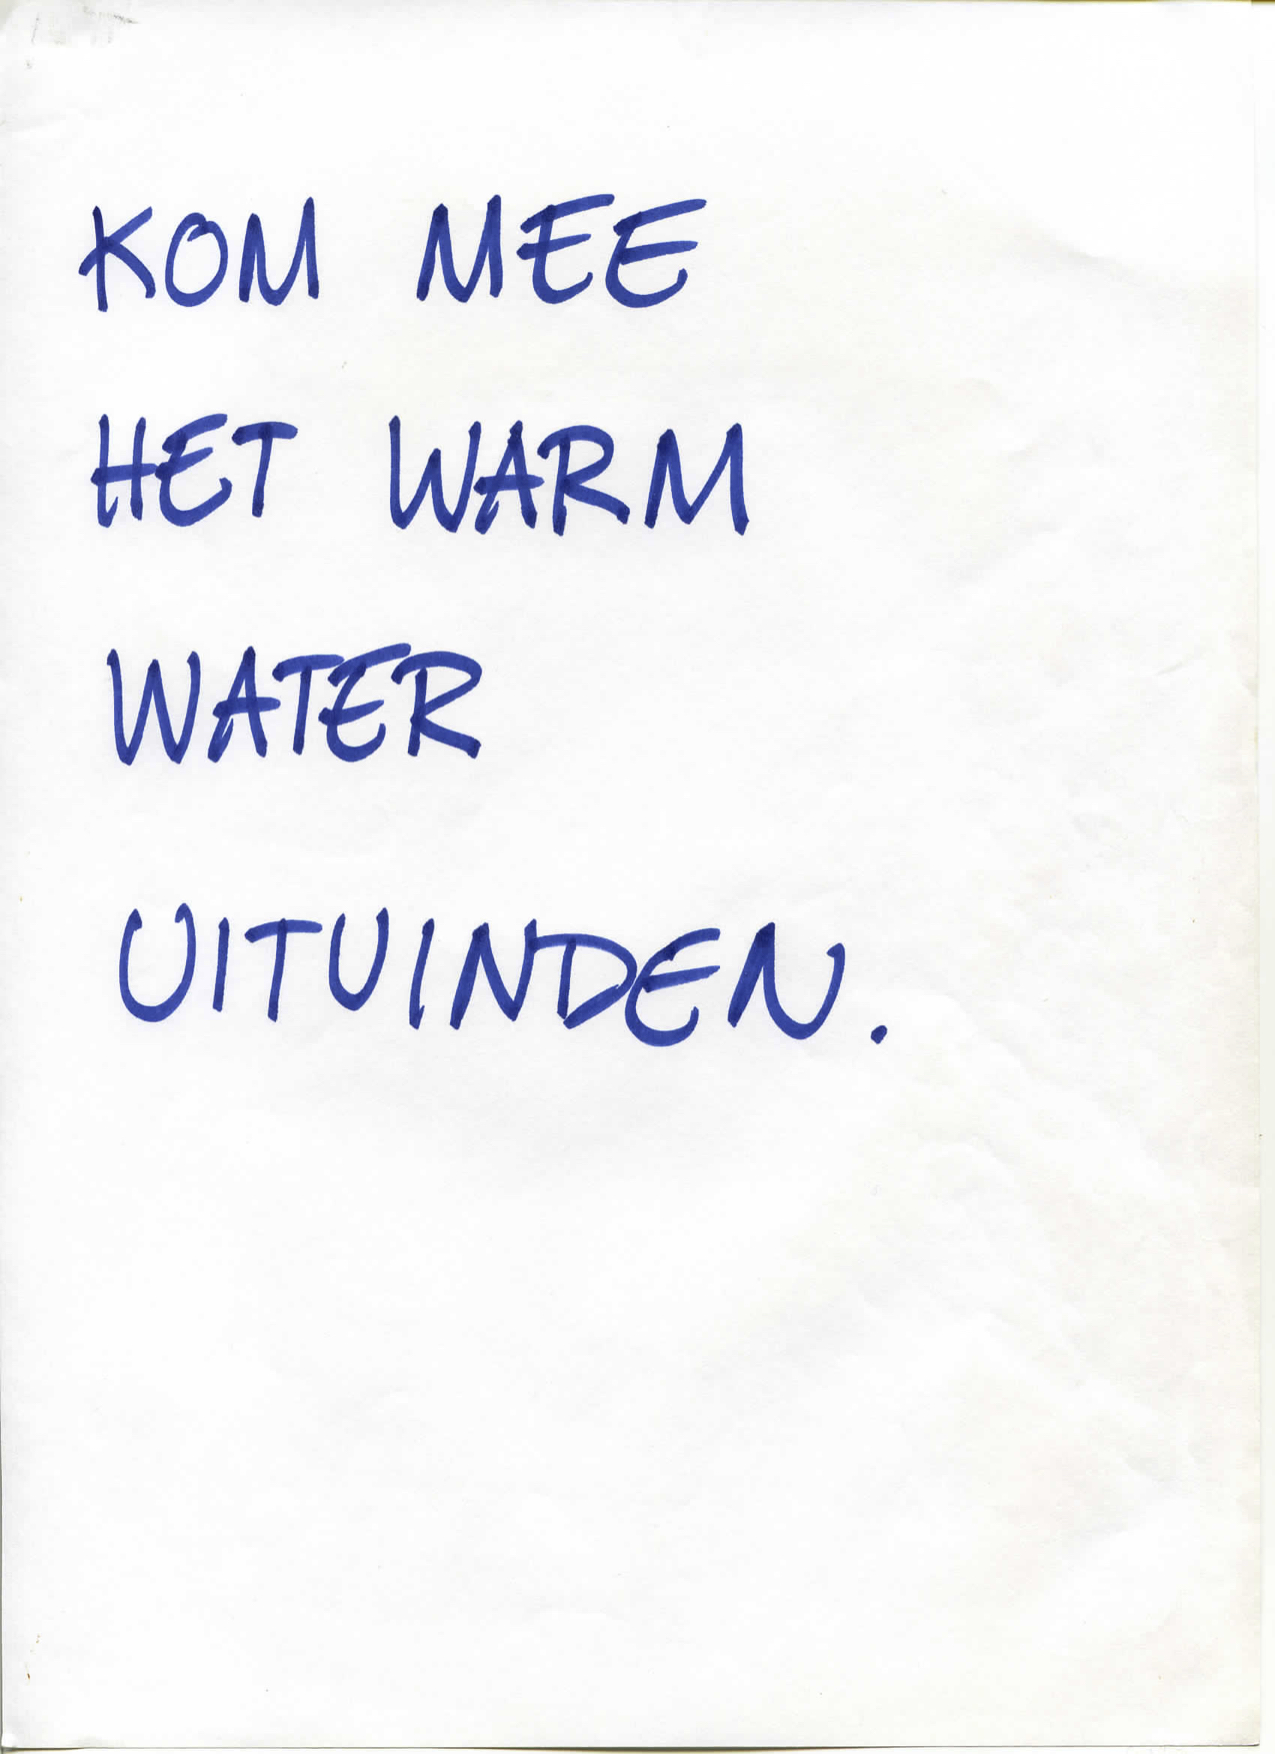 KOM MEE
HET WARM
WATER
UITUINDEN.